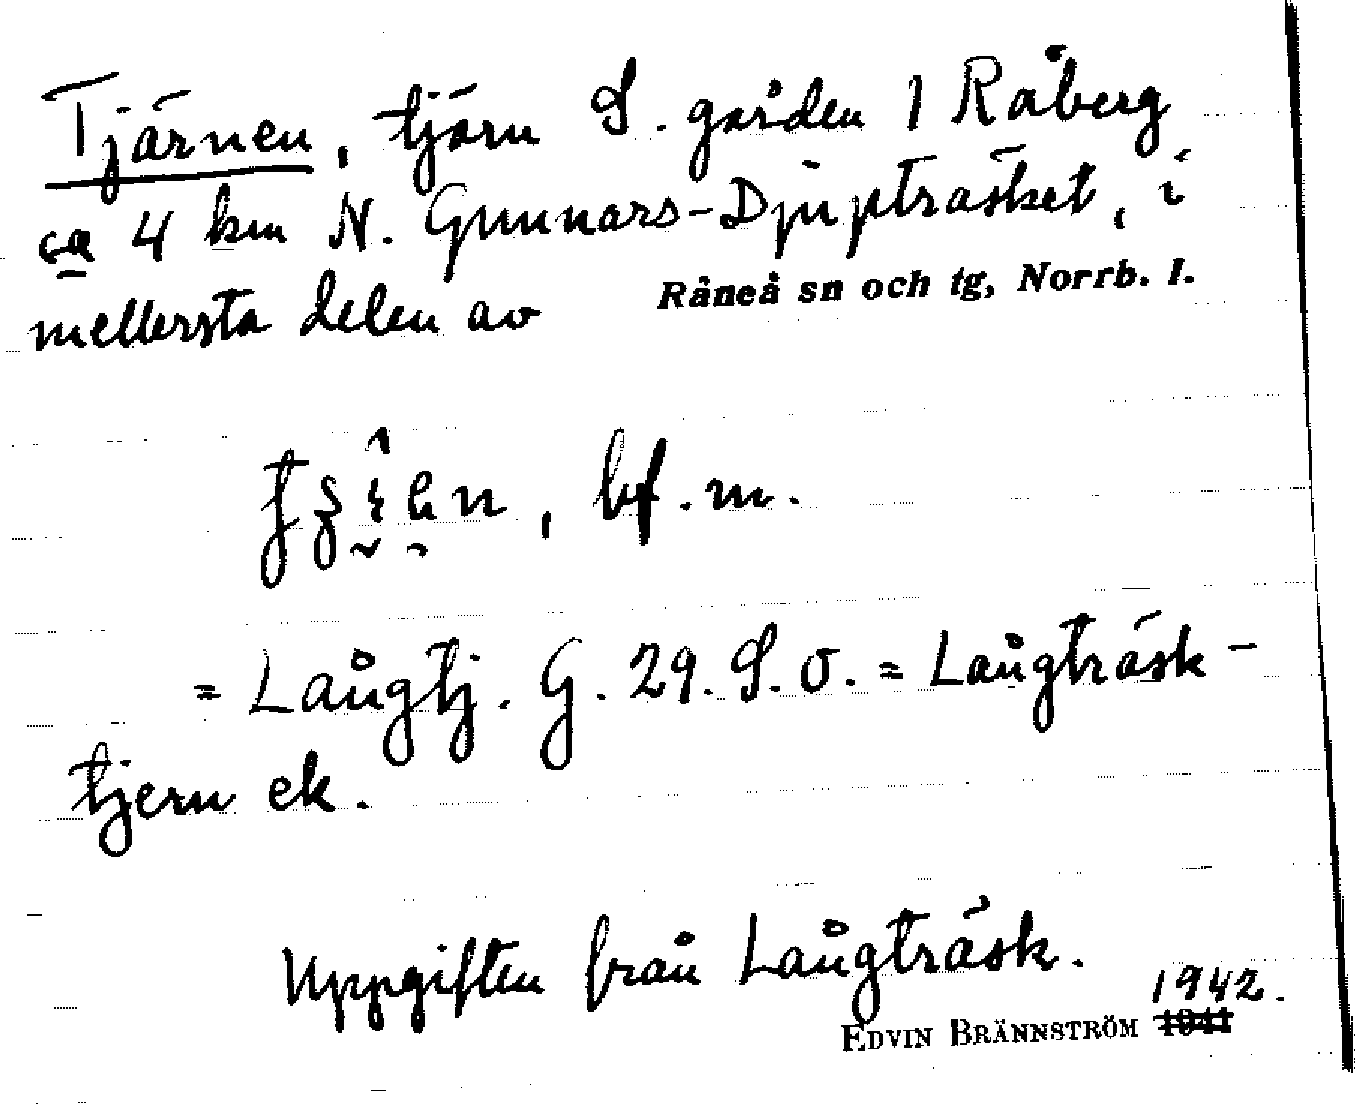 Tjärnen, tjärn S. gården 1 Råberg
ca 4 km N. Gunnars-Djupträsket, i
mellersta delen av Råneå sn och tg, Norrb. l.
bf. m.
= Långtj. G. 29. S. O. = Långträsk-
tjern ek.
Uppgiften från Långträsk.
1942.
EDVIN BRÄNNSTRÖM 1941